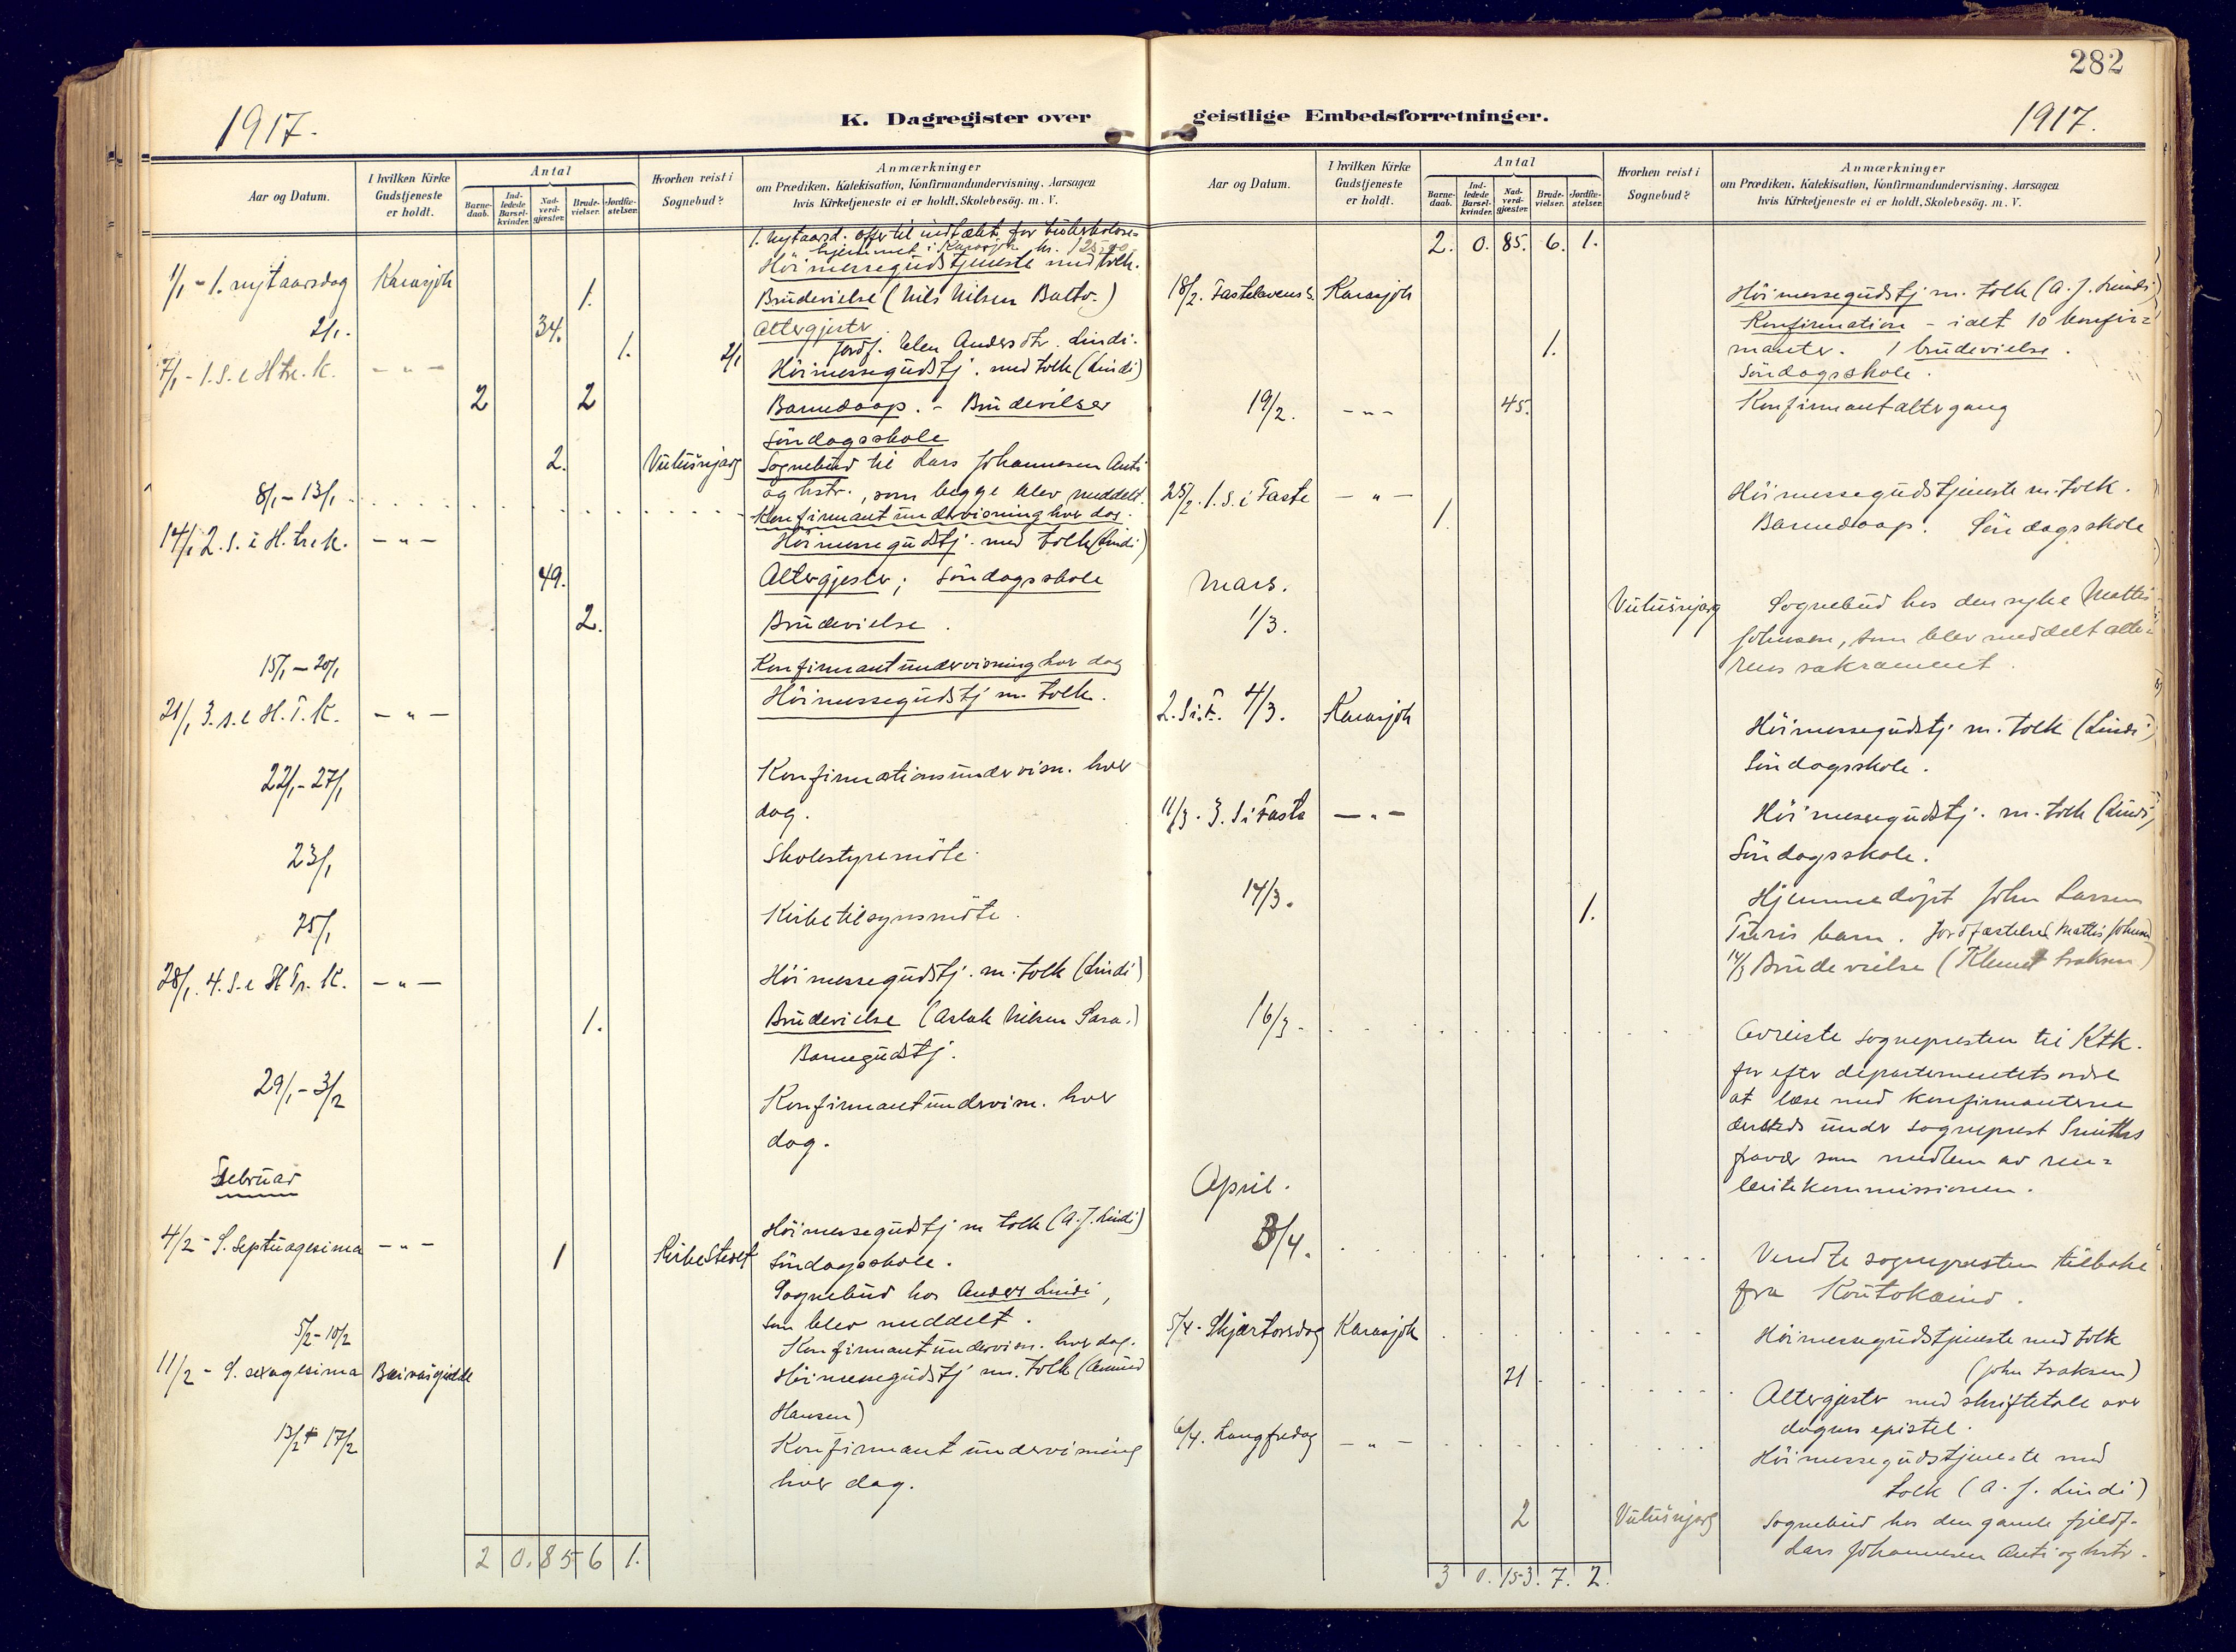 282
1917.
K. Dagregister over
Aar og Datum.
I hvilken Kirke Gudstjeneste er holdt.
Antal
Barne-daab.
Ind-ledede Barsel-kvinder.
Nad-verd-gjæster.
Brude-vielser.
Jordfæ-stelser.
Hvorhen reist i Sognebud?
Anmærkninger
om Prædiken, Katekisation, Konfirmandundervisning, Aarsagen
hvis Kirketjeneste ei er holdt, Skolebesög. m. V.
1. nytaarsd. offer til indtækt for tuberkulose=
hjemmet i Karasjok kr. 125.00
Höimessegudstjeneste med tolk.
1/1 - 1. nytaarsdag Karasjok 1. Brudevielse (Nils Nilsen Balto.)
34. Altergjester
2/1. 1. 2/1 Jordf. Elen Andersdtr. Lindi.
7/1 - 1. S. e H tr. K. - " - Höimessegudstj. med tolk (Lindi)
2 2 Barnedaap. - Brudevilser
Söndagsskole
2. Vulušnjarg Sognebud til Lars Johannesen Anti
og hstr., som begge blev meddelt.
8/1 - 13/1 . Konfirmantundervisning hver dag.
14/1 2. S. i H. tr. K. - " - Höimessegudstj. med tolk (Lindi)
49. Altergjester; Söndagsskole
2. Brudevielse.
15/1 - 20/1 Konfirmantundervisning hver dag
21/1 3. s. e H. T. K. - " - Höimessegudstj m. tolk.
22/1 - 27/1 Konfirmationsundervisn. hver
dag.
23/1 Skolestyremöte.
25/1 Kirketilsynsmöte.
28/1. 4. S. e H Tr. K. - " - Höimessegudstj. m. tolk (Lindi)
1. Brudevielse (Aslak Nilsen Sara.)
Barnegudstj.
29/1 - 3/2 Konfirmantundervisn. hver
dag.
Februar
4/2 - S. Septuagesima - " - Höimessegudstj m tolk (A. J. Lindi)
1 Kirkestedet Söndagsskole.
Sognebud hos Anders Lindi,
som blev meddelt.
5/2 - 10/2 Konfirmantundervisn. hver dag.
11/2 - S. sexagesima Beivašgiedde Höimessegudstj m. tolk (Amund
Hansen)
13/2 + 17/2 Konfirmantundervisning
hver dag.
2 0. 85 6 1.
geistlige Embedsforretninger.
1917.
Aar og Datum.
I hvilken Kirke Gudstjeneste er holdt.
Antal
Barne-daab.
Ind-ledede Barsel-kvinder.
Nad-verd-gjæster.
Brude-vielser.
Jordfæ-stelser.
Hvorhen reist i Sognebud?
Anmærkninger
om Prædiken, Katekisation, Konfirmandundervisning, Aarsagen
hvis Kirketjeneste ei er holdt, Skolebesög. m. V.
2. 0. 85. 6. 1.
18/2. Fastelavens S. Karasjok Höimessegudstj m. tolk (A. J. Lindi)
Konfirmation - ialt 10 konfir=
1. manter. 1 brudevielse.
Söndagsskole.
19/2. - " - 45. Konfirmantaltergang
25/2. 1. S. i Faste - " - Höimessegudstjeneste m. tolk.
1. Barnedaap. Söndagsskole
Mars.
1/3. Vulušnjarg Sognebud hos den syke Mattis
Johnsen, som blev meddelt alte=
rens sakrament.
2. S. i. F. 4/3. Karasjok Höimessegudstj m. tolk (Lindi)
Söndagsskole.
11/3. 3. S i Faste - " - Höimessegudstj. m. tolk (Lindi)
Söndagsskole.
14/3. Hjemmedöpt John Larsen
1. Turis barn. Jordfæstelse Mattis Johnsen
14/3 Brudevielse (Klemet Isaksen)
16/3. Avreiste sognepresten til Ktk.
for efter departementets ordre
at læse med konfirmanterne
dersteds under sogneprest Smiths
fravær som medlem av ren=
beitekommissionen.
April.
3/4. Vendte sognepresten tilbake
fra Koutokeino.
5/4 - Skjærtorsdag Karasjok Höimessegudstjeneste med tolk
(John Isaksen)
21 Altergjester med skriftetale over
dagens epistel.
6/4. Langfredag - " - Höimessegudstjeneste med
tolk (A. J. Lindi)
2 Vulušnjarg Sognebud hos den gamle fjeldf.
Lars Johannesen Anti og hstr.
3 0. 153. 7. 2.